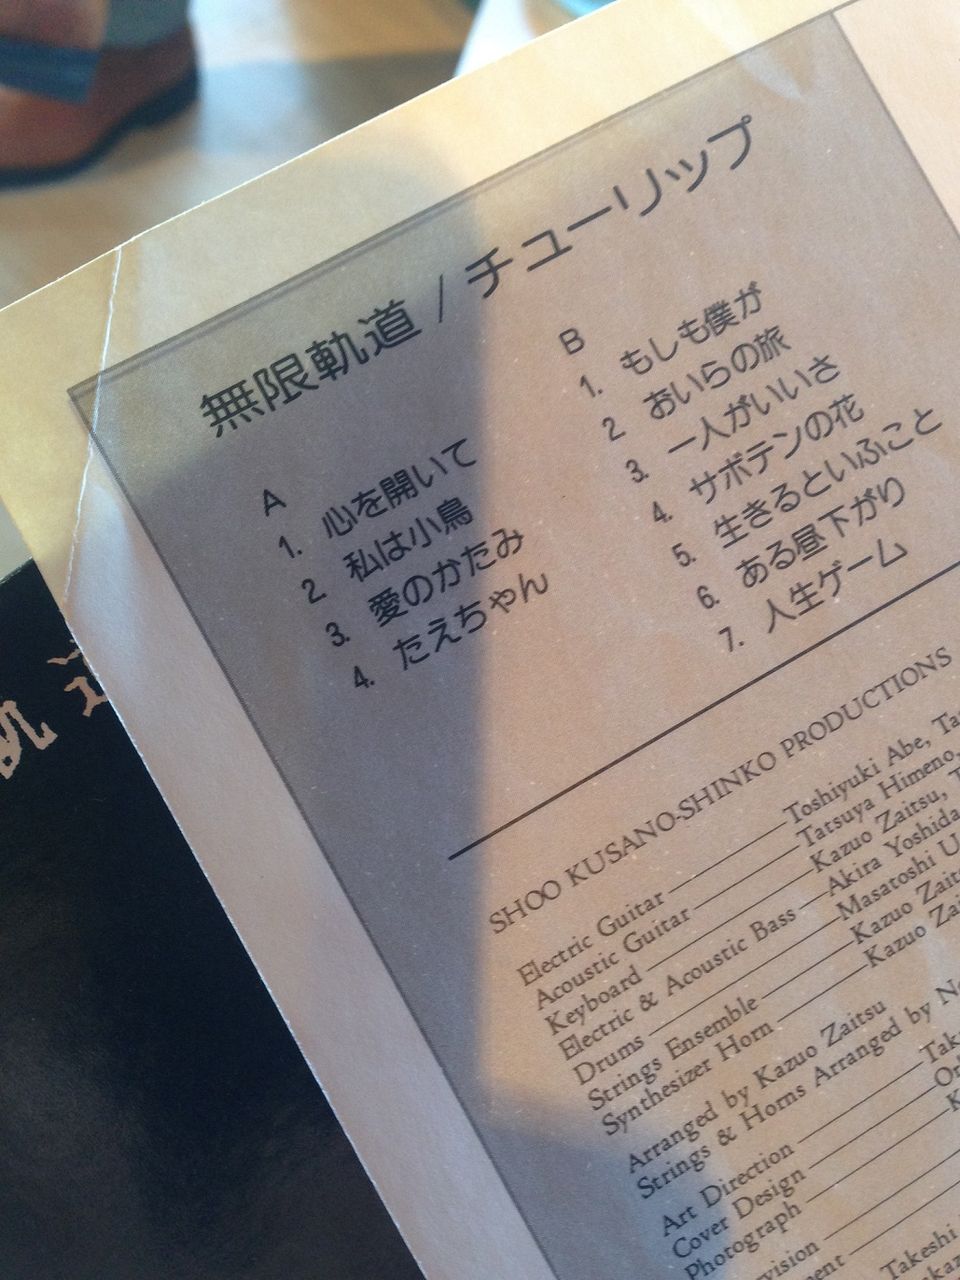 無限軌道 / チューリップ
A
1. 心を開いて
2 私は小鳥
3. 愛のかたみ
4. たえちゃん
B
1. もしも僕が
2 おいらの旅
3. 一人がいいさ
4. サボテンの花
5. 生きるといふこと
6. ある昼下がり
7. 人生ゲーム
SHOO KUSANO-SHINKO PRODUCTIONS
Electric Guitar Toshiyuki Abe,
Acoustic Guitar Tatsuya Himeno,
Keyboard Kazuo Zaitsu,
Electric & Acoustic Bass Akira Yoshida
Drums Masatoshi
Strings Ensemble Kazuo
Synthesizer Horn Kazuo
Arranged by Kazuo Zaitsu
Strings & Horns Arranged by
Art Direction
Cover Design
Photograph
Takeshi
軌